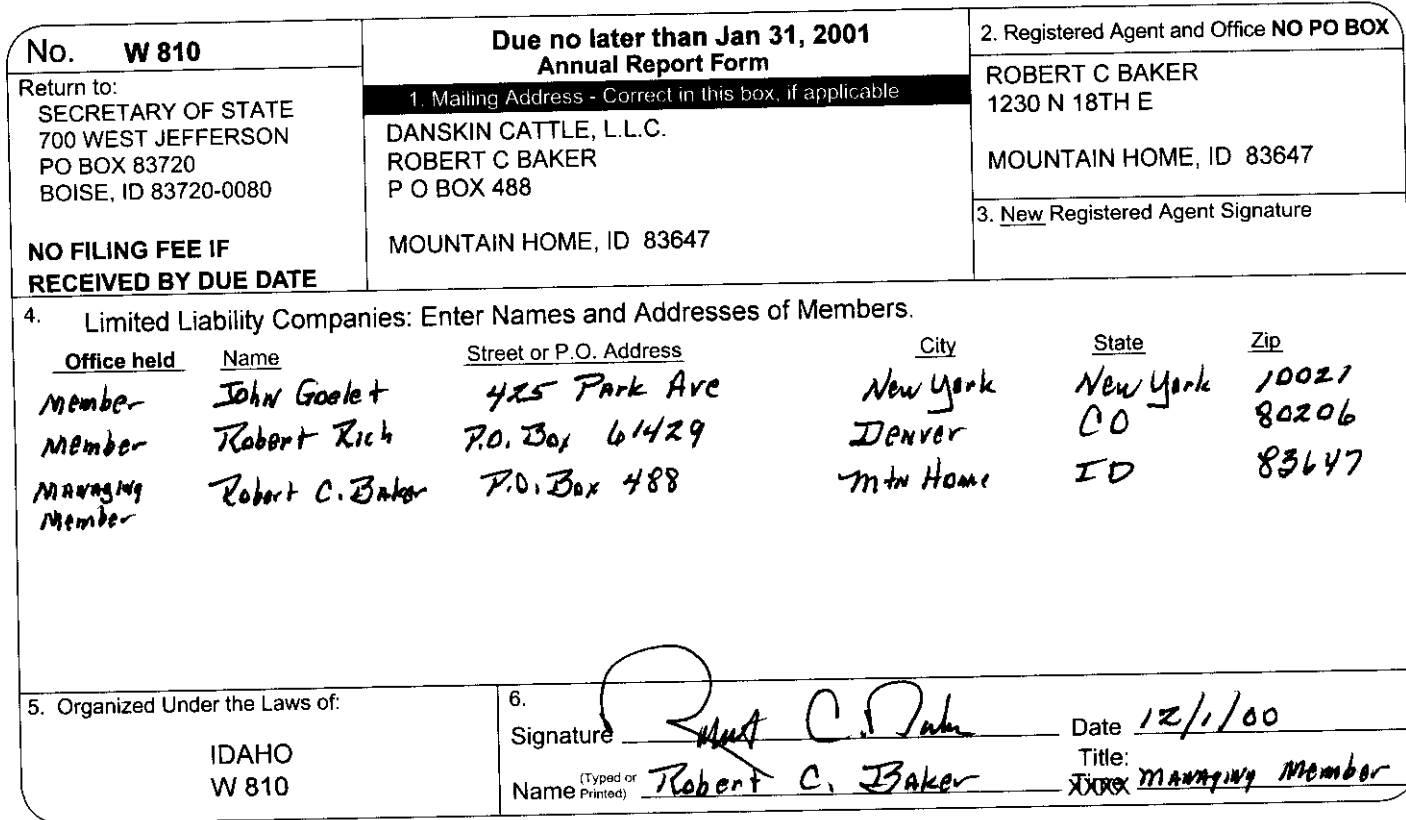 No. W 810
Return to:
SECRETARY OF STATE
700 WEST JEFFERSON
PO BOX 83720
BOISE, ID 83720-0080
NO FILING FEE IF
RECEIVED BY DUE DATE
Due no later than Jan 31, 2001
Annual Report Form
1. Mailing Address - Correct in this box, if applicable
DANSKIN CATTLE, L.L.C.
ROBERT C BAKER
P O BOX 488
MOUNTAIN HOME, ID 83647
2. Registered Agent and Office NO PO BOX
ROBERT C BAKER
1230 N 18TH E
MOUNTAIN HOME, ID 83647
3. New Registered Agent Signature
4. Limited Liability Companies: Enter Names and Addresses of Members.
Office held Name Street or P.O. Address City State Zip
Member John Goelet 425 Park Ave New York New York 10021
Member Robert Rich P.O. Box 61429 Denver CO 80206
Managing Robert C. Baker P.O. Box 488 Mtn Home ID 83647
Member
5. Organized Under the Laws of:
IDAHO
W 810
6.
Signature Robert C. Baker Date 12/1/00
Title:
Name (Typed or Printed) Robert C. Baker Managing Member